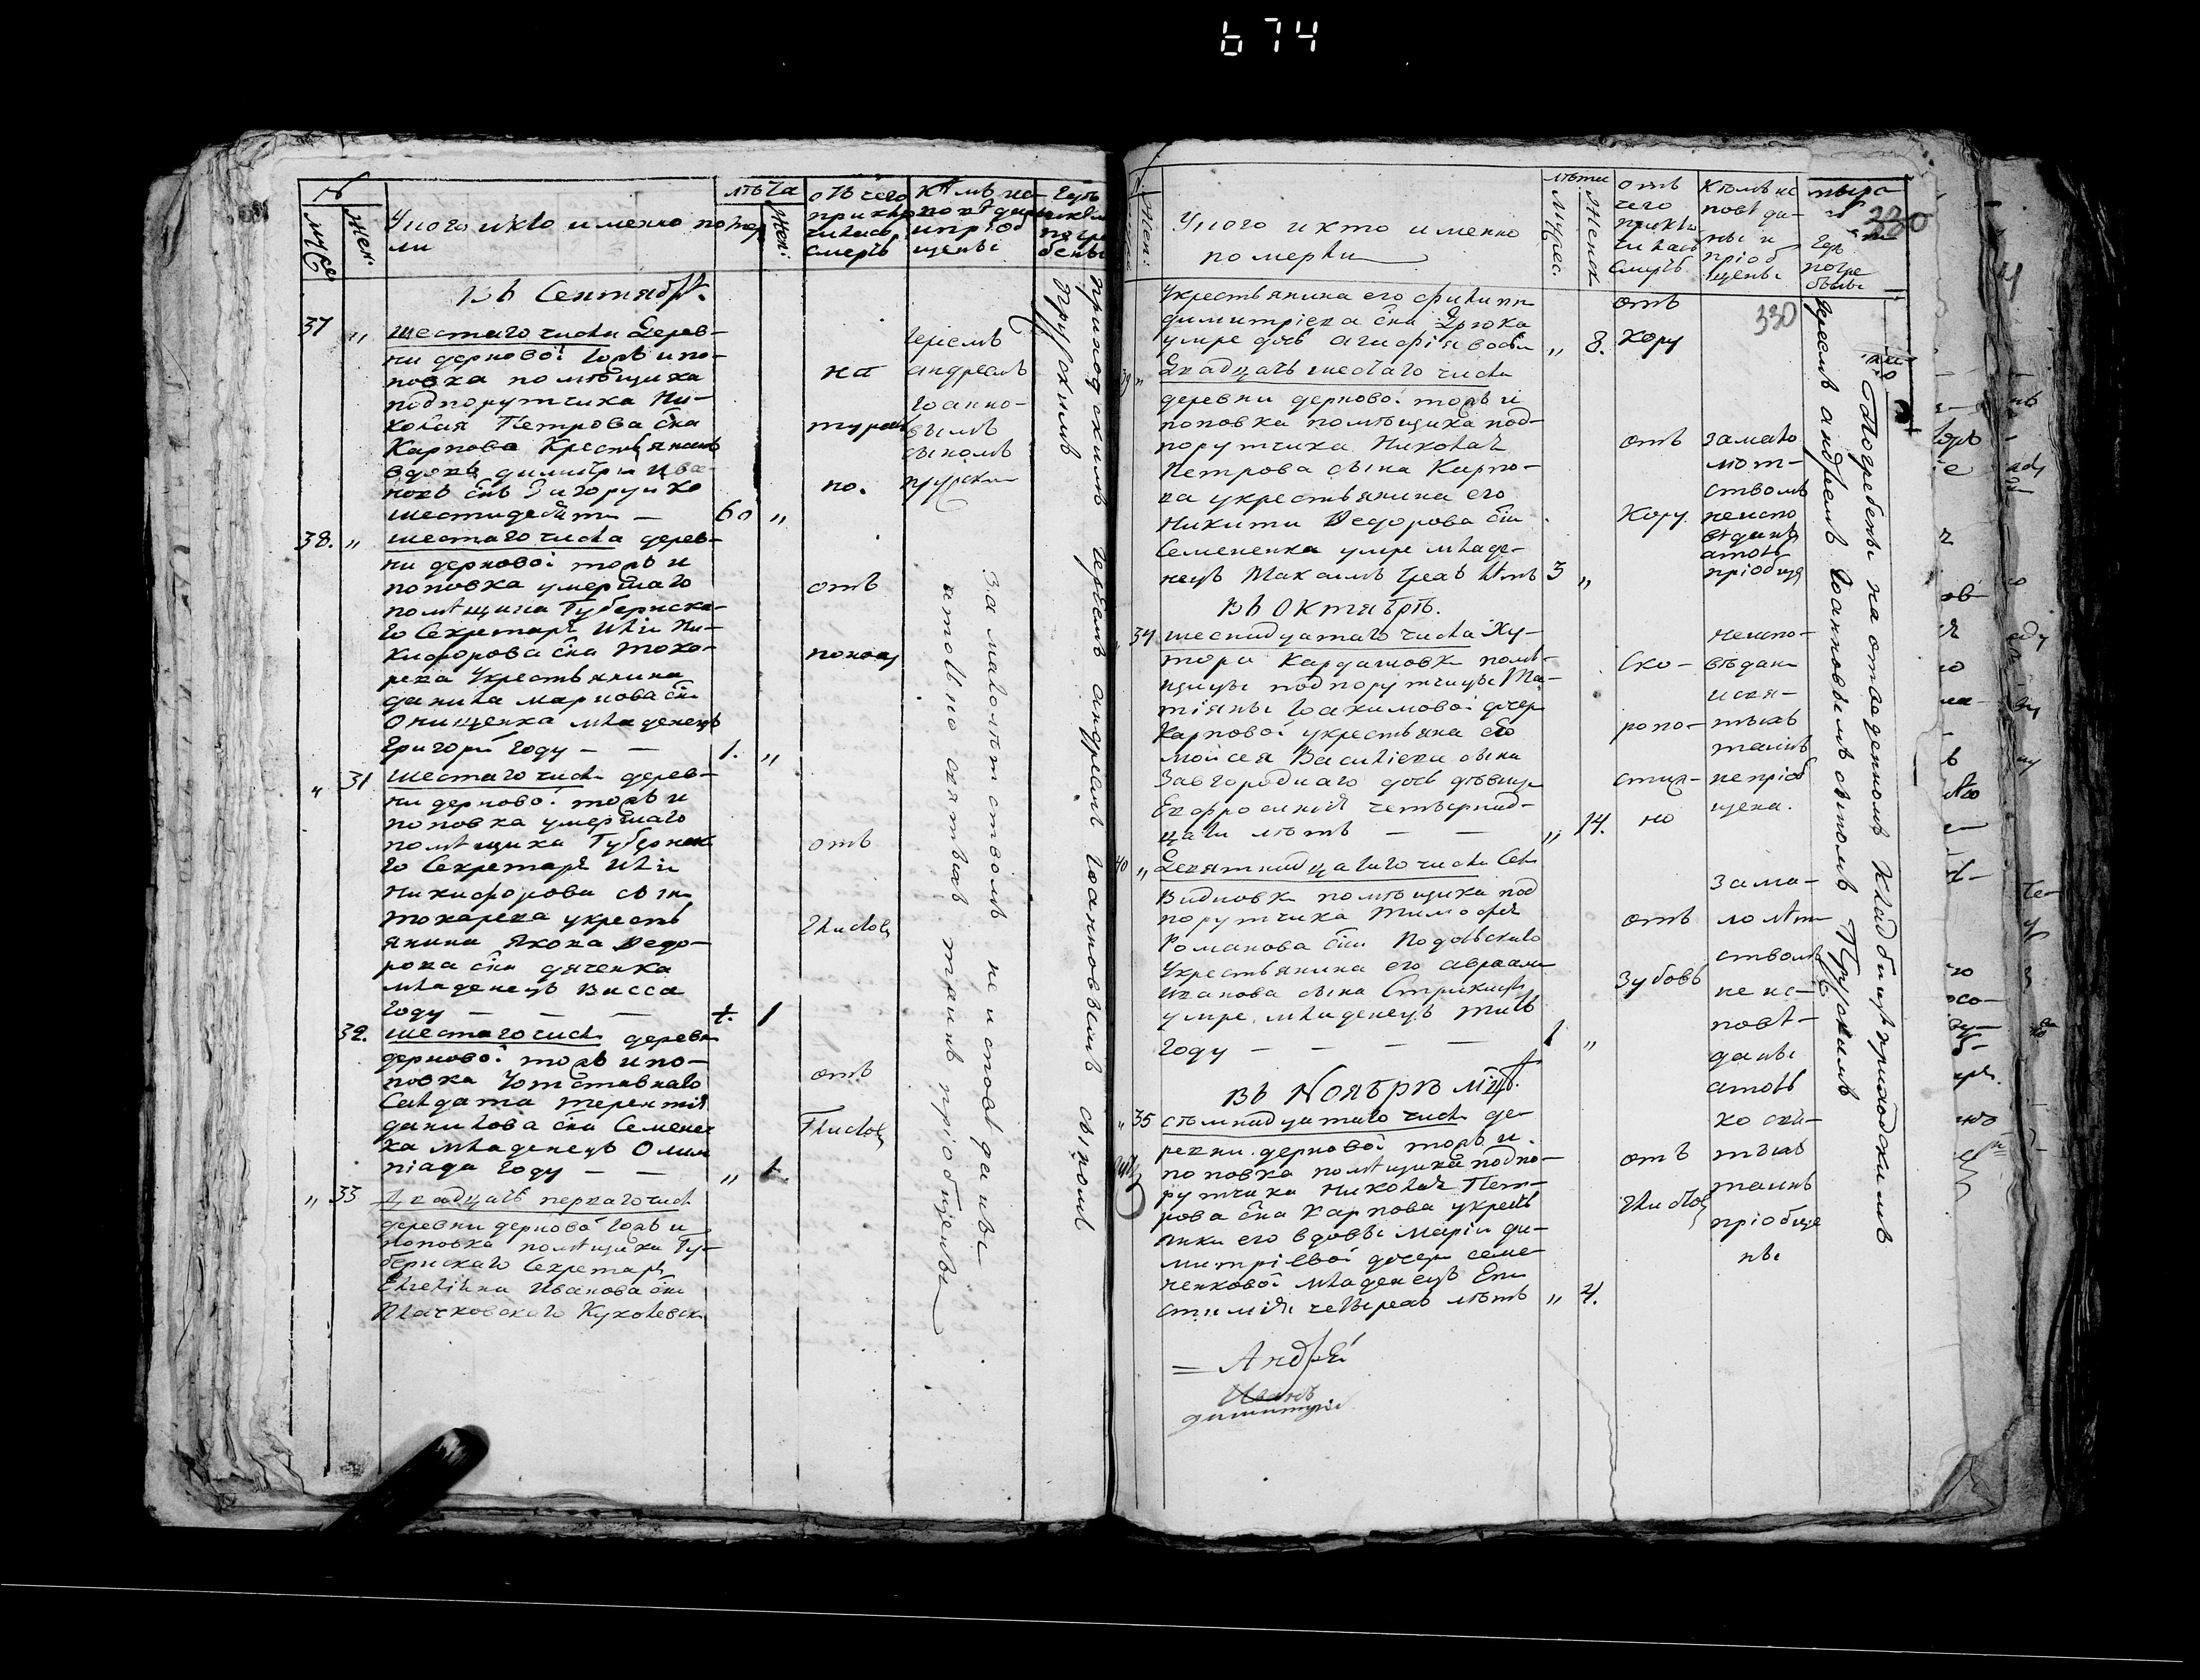 674
№
муж
жен.
У кого и кто именно помер
ли
лѣта
жен:
отъ чего
приклю
чилась
смерть
кѣмъ ис
повѣданы
и пріоб
щены
гдѣ
погре
бены
Въ Сентябрѣ.
37 „ шестаго числа Дерев-
ни дерновой горѣ и по-
повка помѣщика
подпорутчика Ни-
колая Петрова сна
Карпова Крестьянинъ
вдовъ димитри Ива
новъ снъ Загоруйко
шестидесяти — 60 „
на
іереемъ
андреемъ
іоанно-
вымъ
сыномъ
по.
38. „ шестаго числа дерев-
ни дерновой горѣ и
поповка умершаго
помѣщика Губернска-
го Секретаря Иліи Ни-
кифорова сна Тока-
рева У крестьянина
данила маркова сн
Онищенка младенецъ
Григорій году — — 1. „
отъ
поносу
„ 31 шестаго числа дерев-
ни дерновой горѣ и
поповка умершаго
помѣщика Губернска
го Секретаря Иліи
Никифорова сына
токарева укресть
янина Якова Федо-
рова сна дяченка
младенецъ Васса
году — — — 1
отъ
Глистов
32. шестаго числа деревн
дерновой горѣ и по-
повка У отставнаго
Салдата терентія
данилова сна Семенен
ка младенецъ Олим
піада году — — „ 1
отъ
Глистов
„ 33 Двадцать перваго числ
деревни дерновой горѣ и
поповка помѣщика Гу-
бернскаго Секретаря
Ивановa сна
Плачковскаго
За малолѣтствомъ не исповѣданы
а только святыхъ таинъ пріобщены
приходскимъ іереемъ андреемъ іоанновымъ сыномъ
У кого и кто именно
померли
жен:
лѣта
Мужес.
Женск.
отъ
чего
приклю
чилась
смерть
Кѣмъ ис
повѣда-
ны и
пріоб
щены
гдѣ
погре
бены
330
330
Укрестьянина его филипп
димитріева сна
умре дочь агафія восьм „ 8.
отъ
Кору
39 „ Двадцать шестаго числа
деревни дерновой горѣ и
поповка помѣщика под-
порутчика Николая
Петрова сына Карпо-
ва укрестьянина его
Никиты Федорова сн
Семененка умре младе-
нецъ Максимъ трехъ лѣтъ 3 „
отъ
Кору
за мало
лѣт-
ствомъ
неиспо
вѣданъ
а толь
пріобще
Въ Октябрѣ.
„ 34 шеснадцатаго числа Ху-
тора Кардашовки помѣ-
щицы подпорутчицы Та-
тіяны Іоакимовой дочер
Карповой укрестьяна его
мойсея Василіева сына
Завгороднаго дочь дѣвица
Евфросинія четырнад-
цати лѣтъ — — „ 14.
Ско-
ропо-
стиж-
но
неиспо-
вѣдана
и свя-
тыхъ
таинъ
непріоб
щена.
40 „ Девятнадцатаго числа Сел
Видновк помѣщика под
порутчика Тимофея
Романова сна Подольскаго
Укрестьянина его авраама
Иванова сына
умре младенецъ титъ
году — — — — 1 „
отъ
зубовъ
За ма-
лолѣт
ствомъ
не ис-
повѣ-
даны
а толь
ко свя-
тыхъ
таинъ
пріобще
ны
Въ Ноябрѣ мцѣ.
„ 35 седмнадцатаго числа де-
ревни дерновой горѣ и
поповка помѣщика подпо-
рутчика Николая Пет-
рова сна Карпова укресть
янки его вдовы Маріи ди-
митріевой дочери семе-
ненковой младенецъ Епи
стимія четырехъ лѣтъ „ 4.
отъ
глистов
Погребены на отведенномъ кладбищѣ приходскимъ
іереемъ андреемъ іоанновымъ сыномъ
Андрей
Иванъ
димитрій